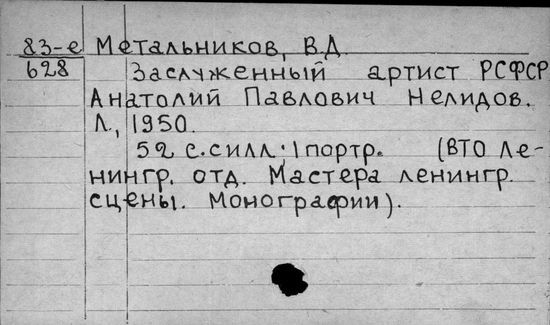 83-е Метальников, В.Д.
628 Заслуженный артист РСФСР
Анатолий Павлович Нелидов.
Л., 1950.
52 с.силл; 1 портр. (ВТО Ле-
нингр. отд. Мастера ленингр.
сцены. Монографии).